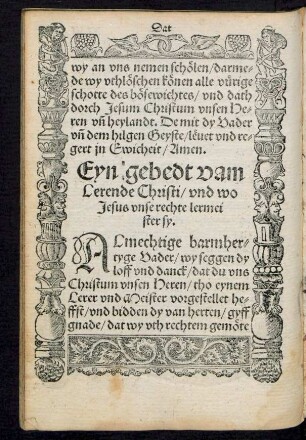 Dat
wy an vns nemen schölen/darme-
de wy vthlöschen könen alle vürige
schotte des bösewichtes/ vnd dath
dorch Jesum Christum vnsen He-
ren vñ heylandt. De mit dy Vader
vñ dem hilgen Geyste/ leuet vnd re-
gert jn Ewicheit/ Amen.
Eyn gebedt vam
Lerende Christi/ vnd wo
Jesus vnse rechte lermei
ster sy.
ALmechtige barmher-
tyge Vader/ wy seggen dy
loff vnd danck/ dat du vns
Christum vnsen Heren/ tho eynem
Lerer vnd Meister vorgestellet he-
ffst/ vnd bidden dy van herten/ gyff
gnade/ dat wy vth rechtem gemöte